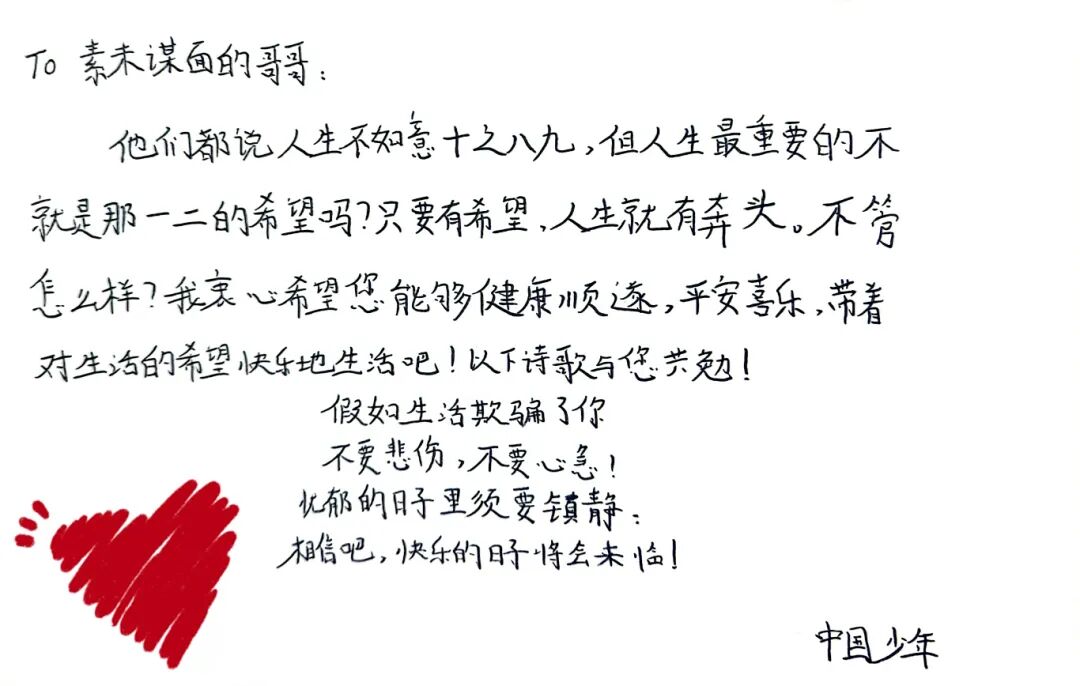 To 素未谋面的哥哥：
他们都说人生不如意十之八九，但人生最重要的不
就是那一二的希望吗？只要有希望，人生就有奔头。不管
怎么样？我衷心希望您能够健康顺遂，平安喜乐，带着
对生活的希望快乐地生活吧！以下诗歌与您共勉！
假如生活欺骗了你
不要悲伤，不要心急！
忧郁的日子里须要镇静：
相信吧，快乐的日子将会来临！
中国少年